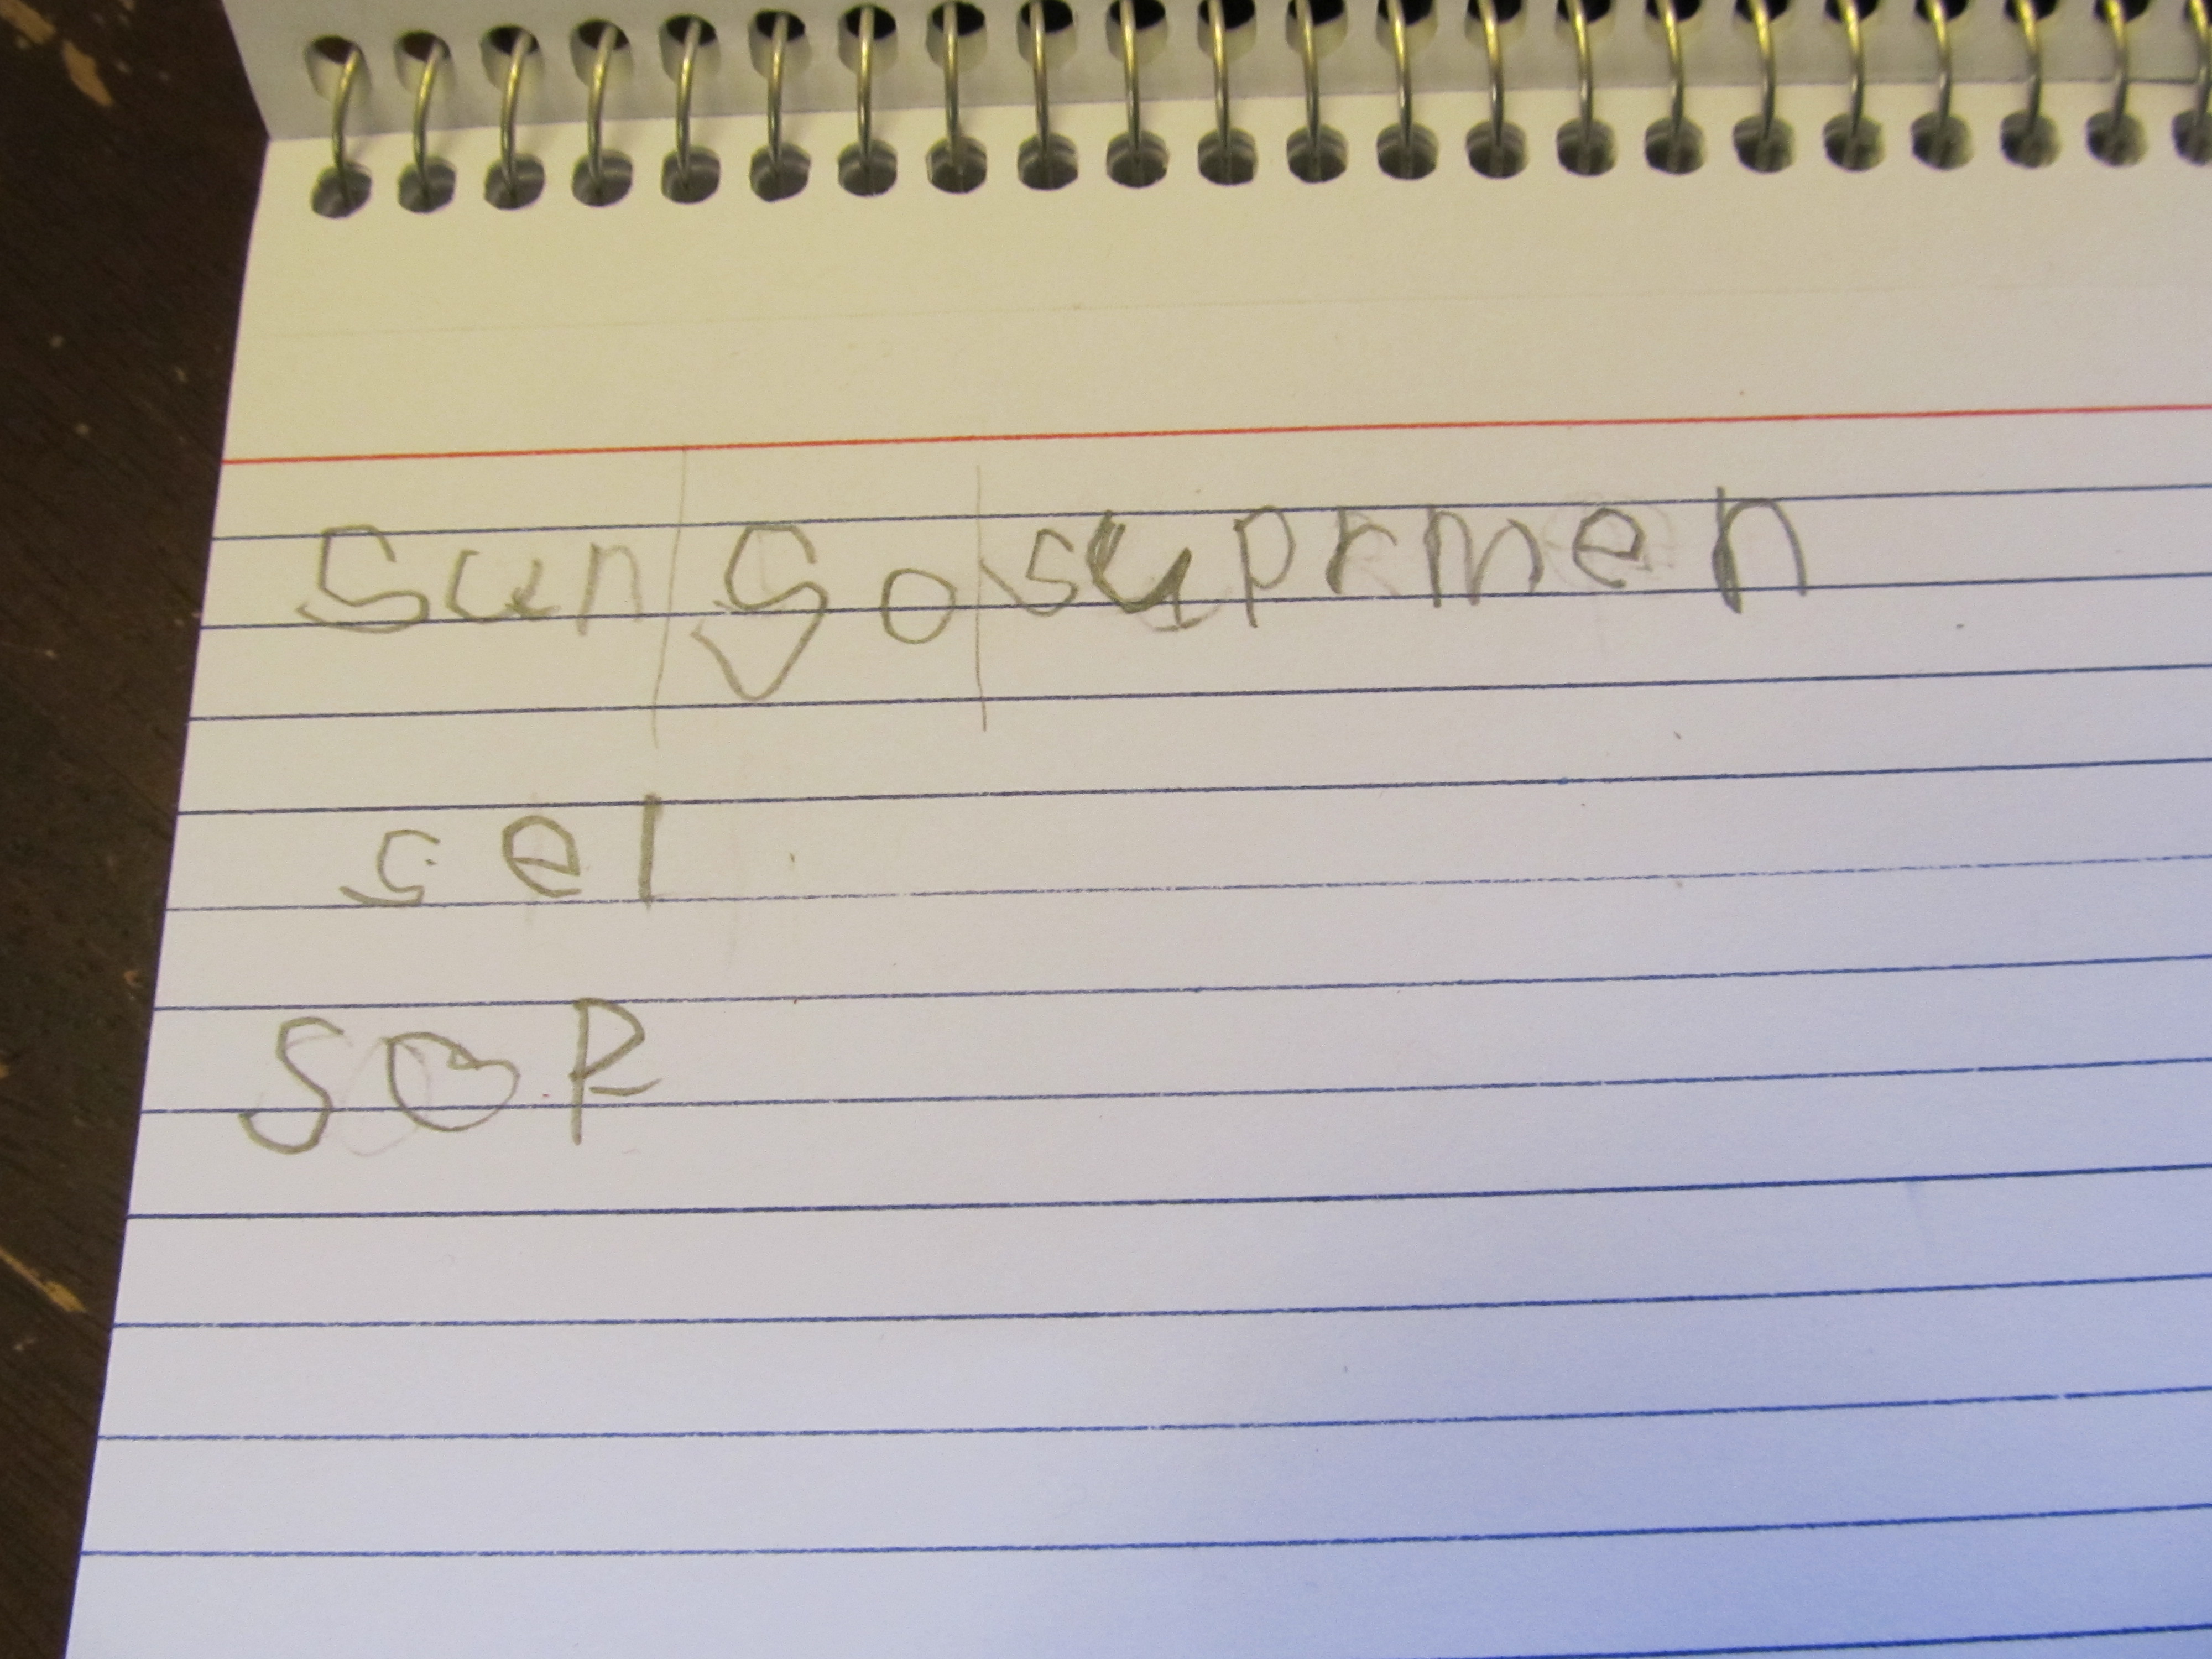 Sun | So | suprmen
sel
SOR